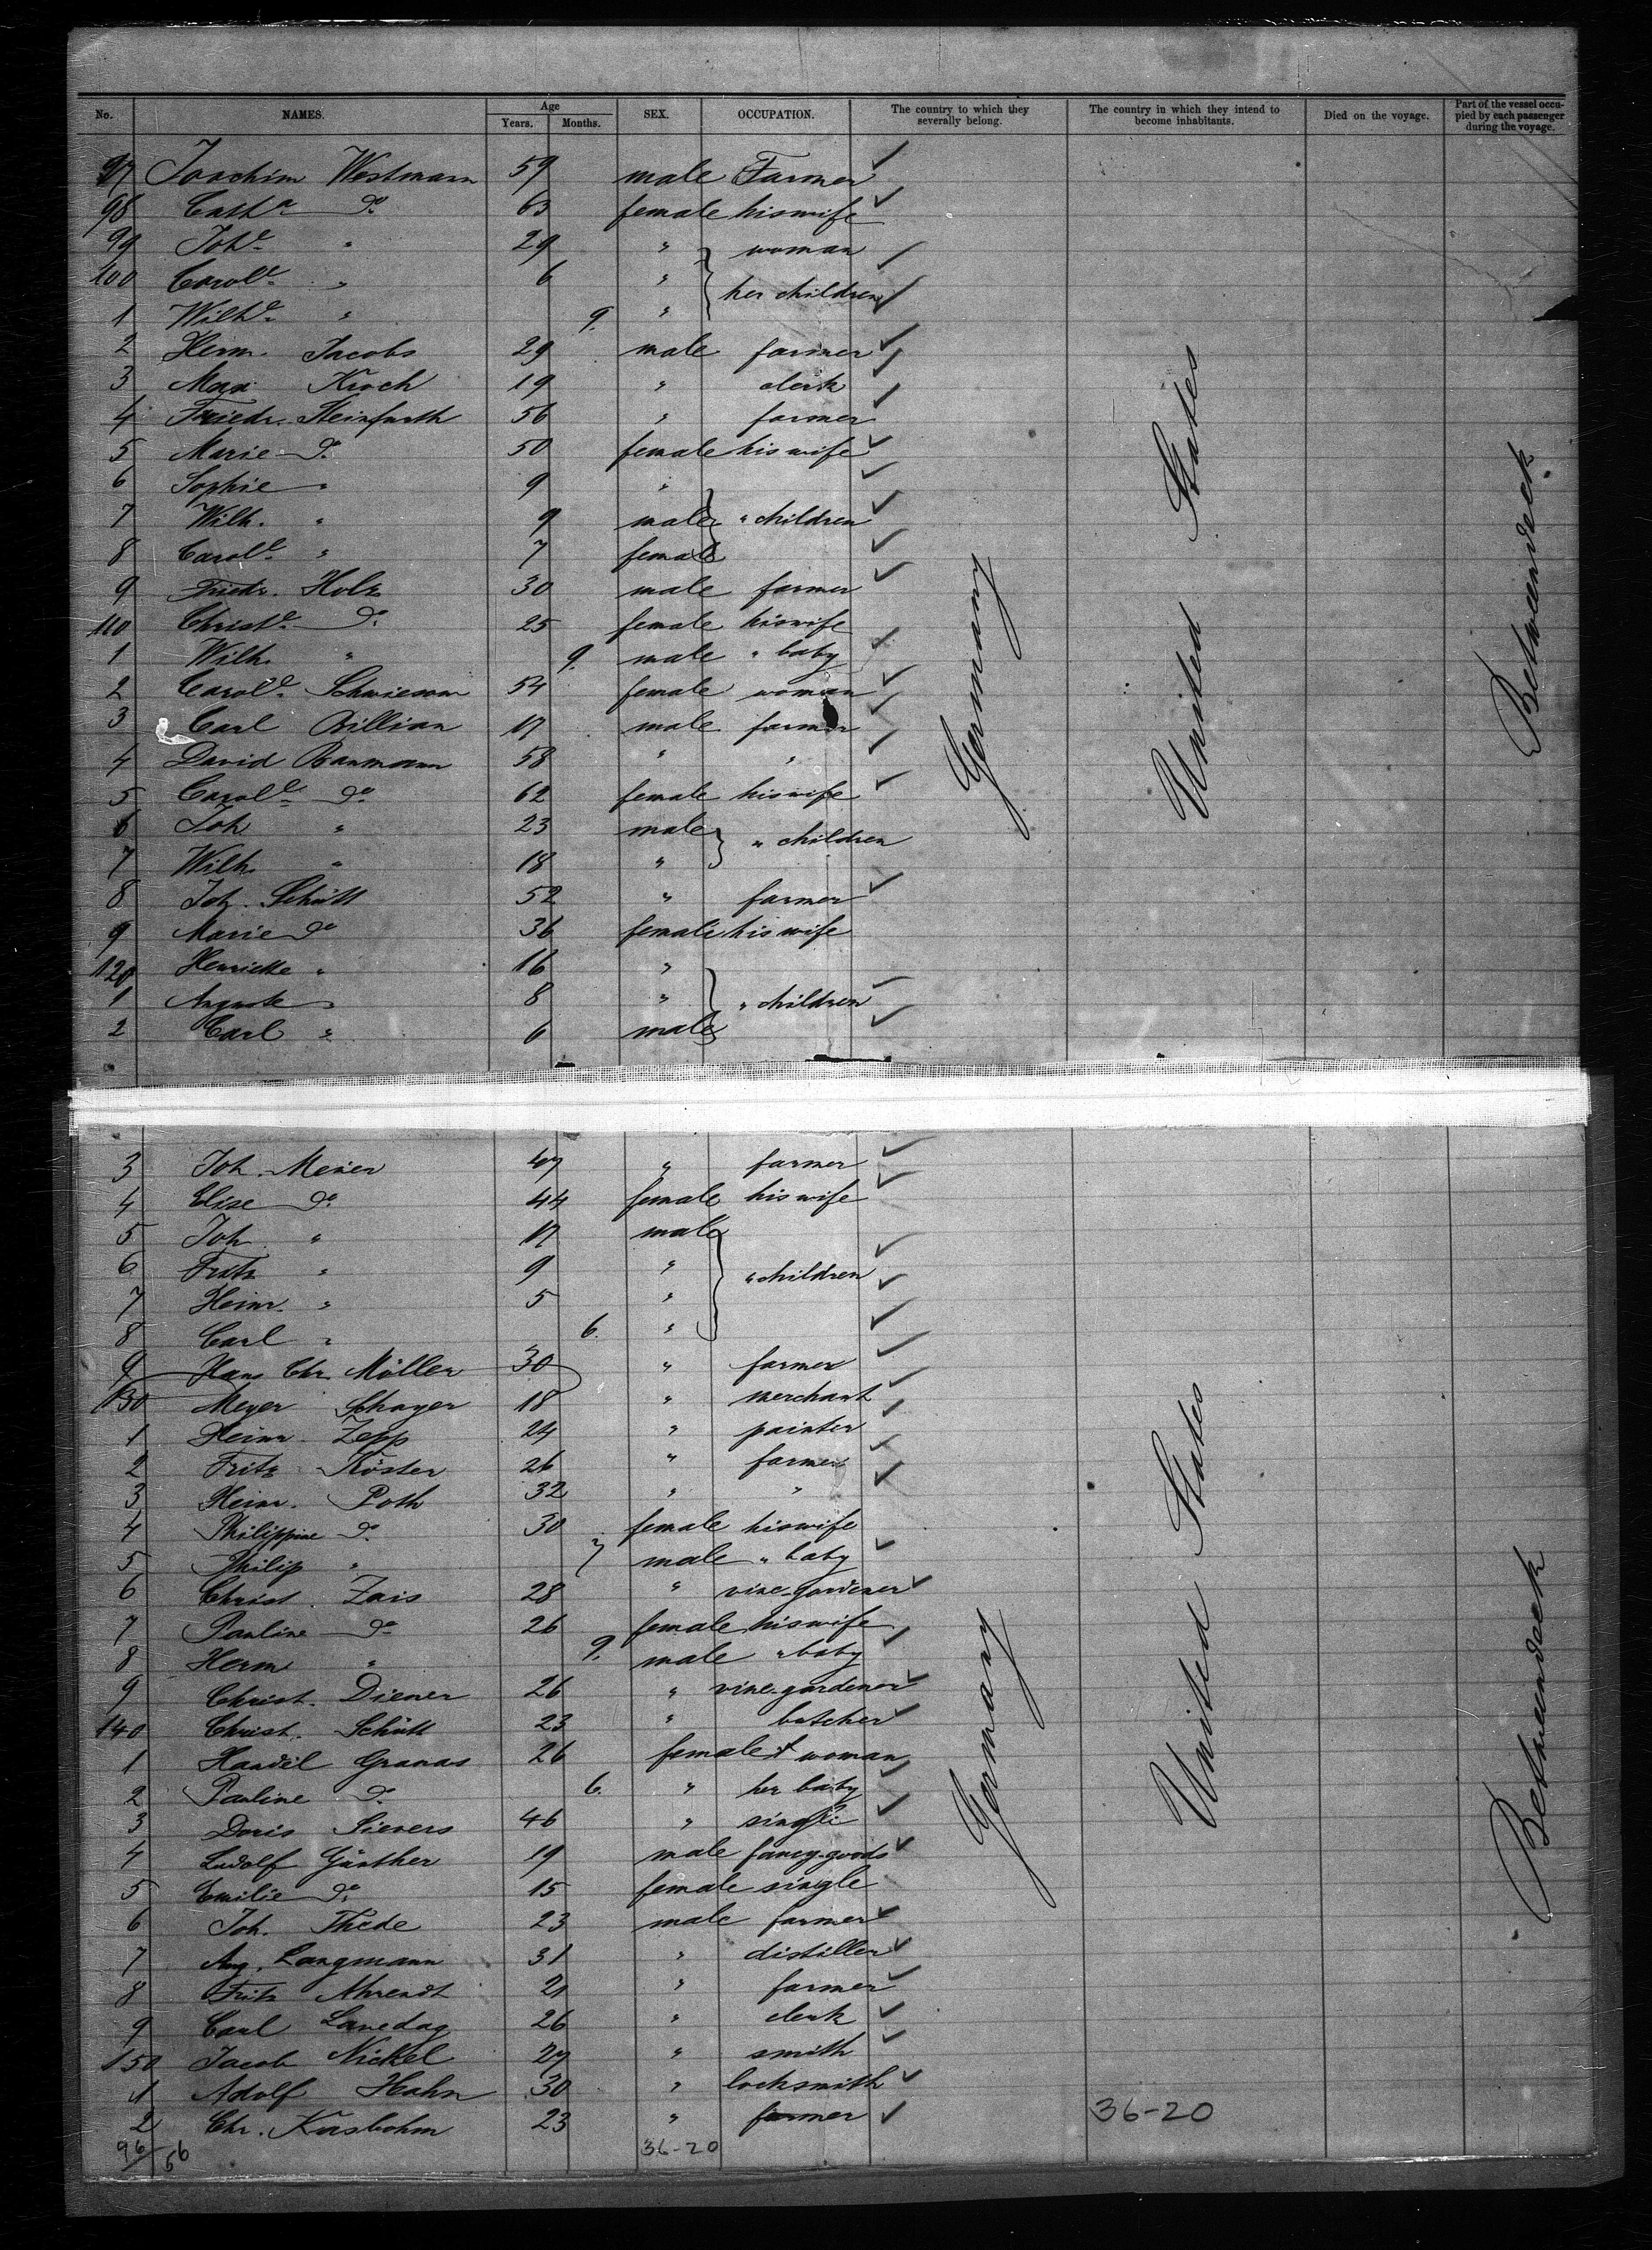 No. NAMES. Age Years. Months. SEX. OCCUPATION. The country to which they severally belong. The country in which they intend to become inhabitants. Died on the voyage. Part of the vessel occupied by each passenger during the voyage.
97 Joachim Westmann 59 male Farmer
98 Cath.a do 63 female his wife
99 Joh.e " 29 " woman
100 Carol.e " 6 " her children
1 Wilh.e " 9. "
2 Herm. Jacobs 29 male farmer
3 Max Kroch 19 " clerk
4 Friedr. Steinfurth 56 " farmer
5 Marie do 50 female his wife
6 Sophie " 9 "
7 Wilh. " 9 male " children
8 Carol.e " 7 female
9 Friedr. Holz 30 male farmer
110 Christ.e do 25 female his wife
1 Wilh. " 9. male " baby
2 Carol.e Schwiesow 54 female woman
3 Carl Billian 17 male farmer
4 David Baumann 58 " "
5 Carol.e do 62 female his wife
6 Joh " 23 male " children
7 Wilh. " 18 "
8 Joh. Schütt 52 " farmer
9 Marie do 36 female his wife
120 Henriette " 16 "
1 Auguste " 8 " " children
2 Carl " 6 male
Germany United States Betweendeck
3 Joh. Meier 47 " farmer
4 Elise do 44 female his wife
5 Joh " 17 male
6 Fritz " 9 " " children
7 Heinr. " 5 "
8 Carl " 6. "
9 Hans Chr. Möller 30 " farmer
130 Meyer 18 " merchant
1 Heinr. Zepp 24 " painter
2 Fritz Köster 26 " farmer
3 Heinr. Poth 32 " "
4 Philippine do 30 female his wife
5 Philip " 7 male " baby
6 Christ. Zais 28 " vine-gardener
7 Pauline do 26 female his wife
8 Herm " 9. male " baby
9 Christ. Diener 26 " vine-gardener
140 Christ. Schütt 23 " butcher
1 Handel Granas 26 female woman
2 Pauline do 6. " her baby
3 Doris Sievers 46 " single
4 Ludolf Günther 19 male fancy-goods
5 Emilie do 15 female single
6 Joh. Thede 23 male farmer
7 Aug. Langmann 31 " distiller
8 Fritz Ahrendt 21 " farmer
9 Carl Lanedag 26 " clerk
150 Jacob Nickel 27 " smith
1 Adolf Hahn 30 " locksmith
2 Chr. Kasbohm 23 " farmer
Germany United States Betweendeck
96/56 36-20 36-20